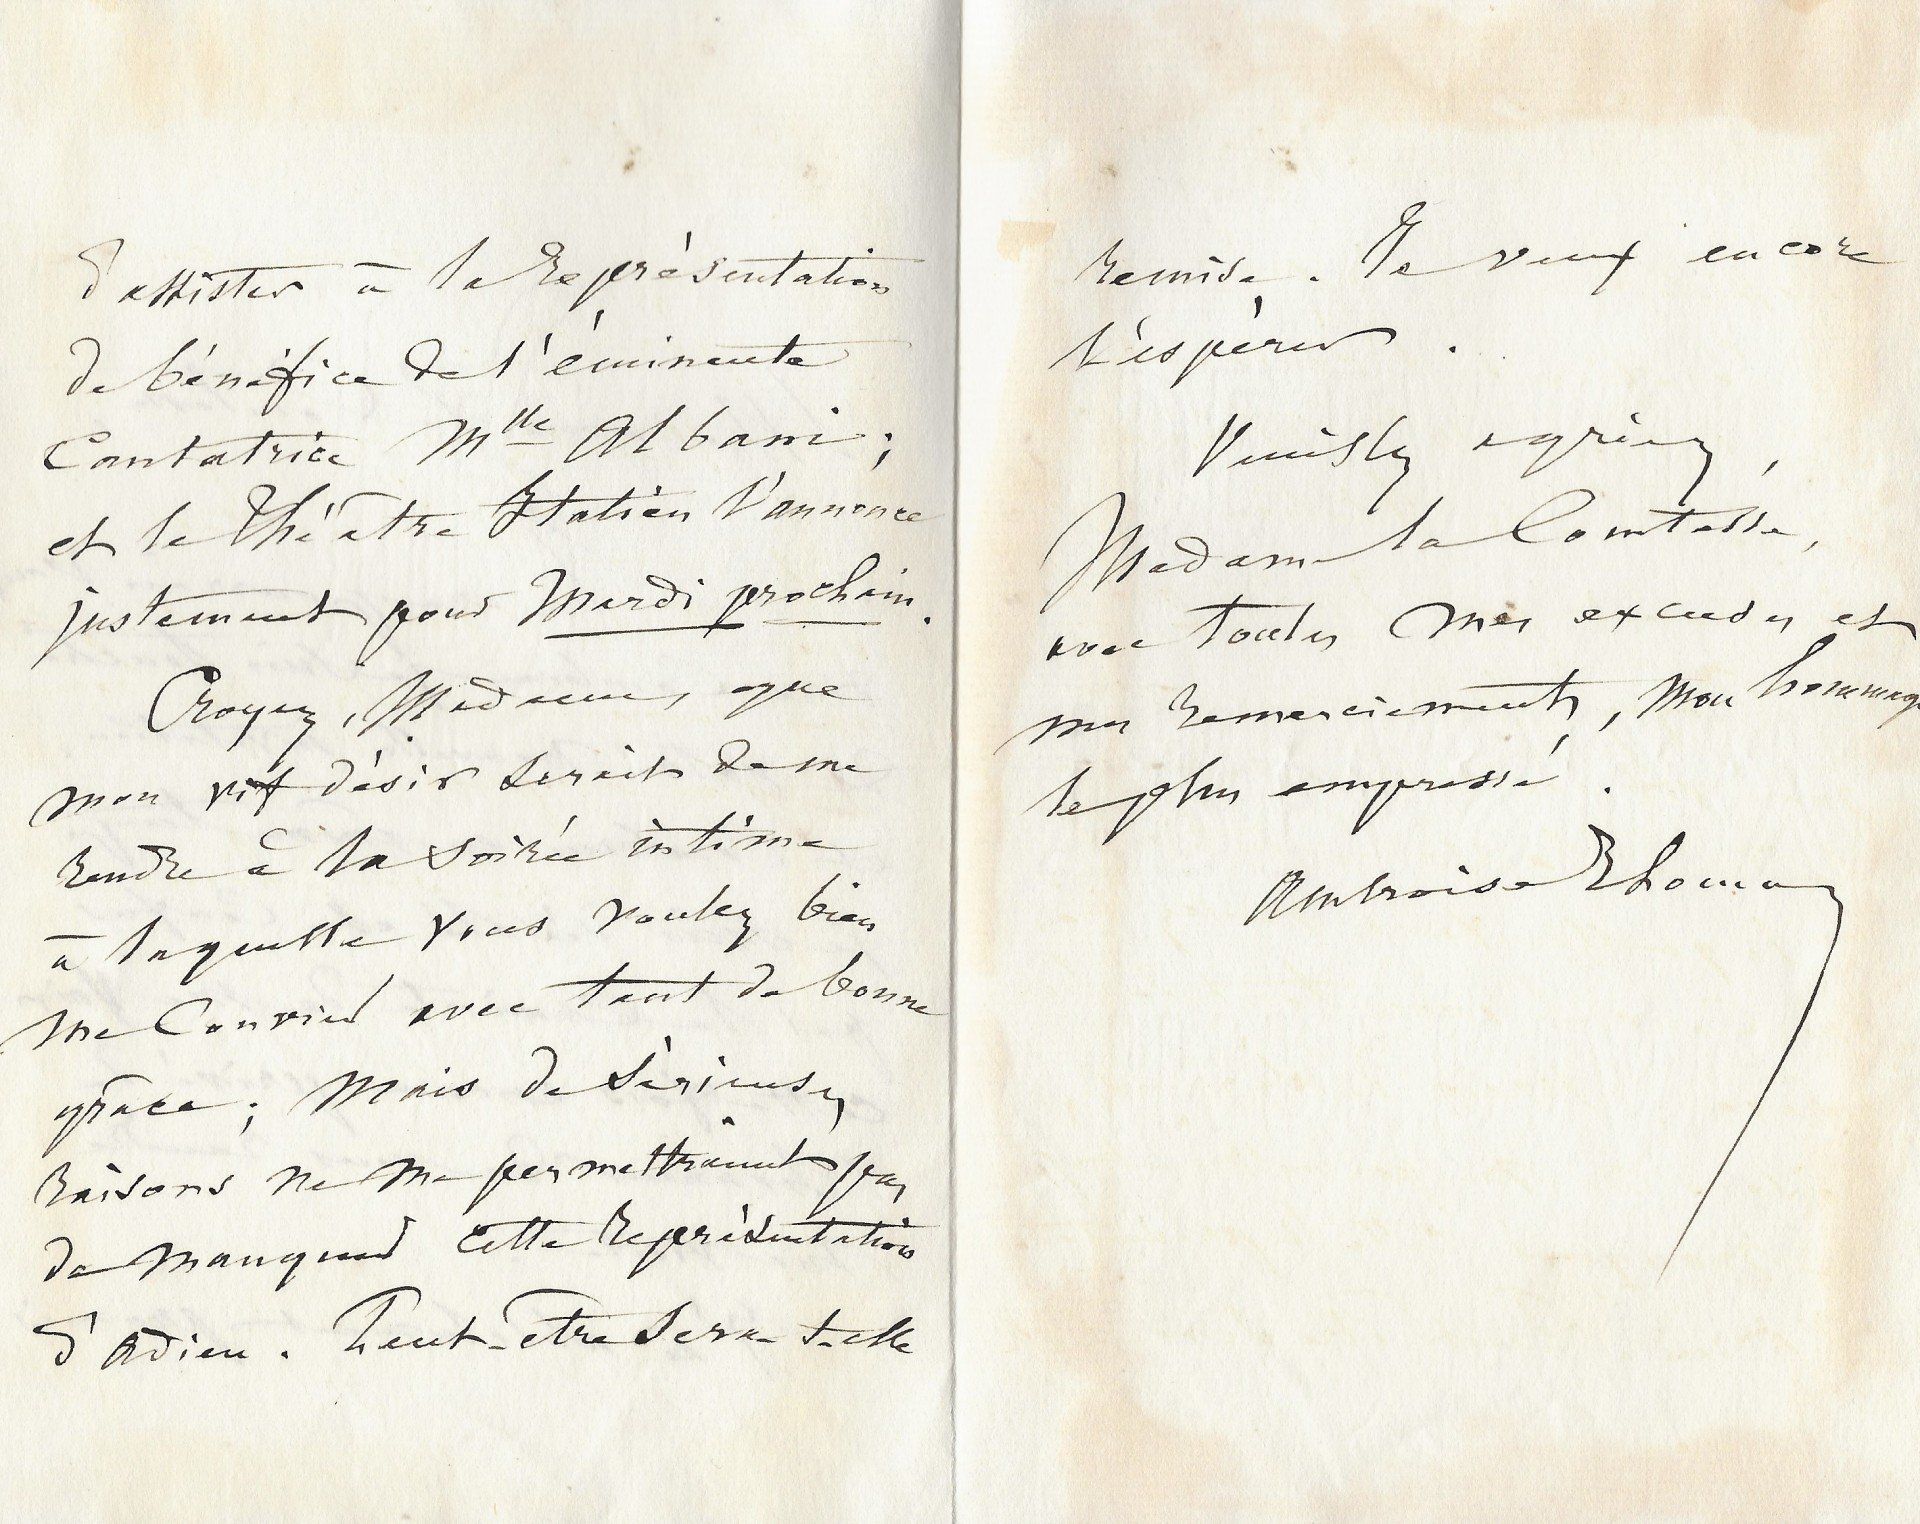 d'assister à la Représentation
de bénéfice de l'éminente
Cantatrice Mlle Albani;
et le Théâtre Italien l'annonce
justement pour Mardi prochain.
Croyez, Madame, que
mon vif désir serait de me
rendre à la soirée intime
à laquelle vous voulez bien
me Convier avec tant de bonne
grâce; Mais de sérieuses
raisons ne me permettraient pas
de manquer cette Représentation
d'Adieu. Peut-être sera-t-elle
remise. Je veux encore
l'espérer.
Veuillez agréer,
Madame la Comtesse,
avec toutes mes excuses et
mes remerciements, mon hommage
le plus empressé.
Ambroise Thomas